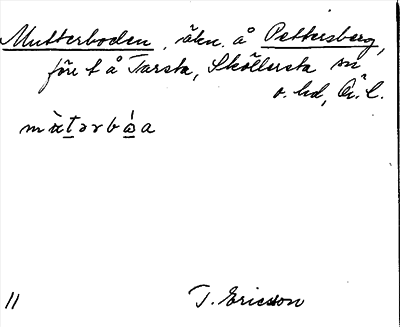 Mutterboden, åkn. å Pettersberg,
förr t å Tarsta, Sköllersta sn
o. hd, Ör. l.
màt̲ərbó̲a
11 T. Ericsson